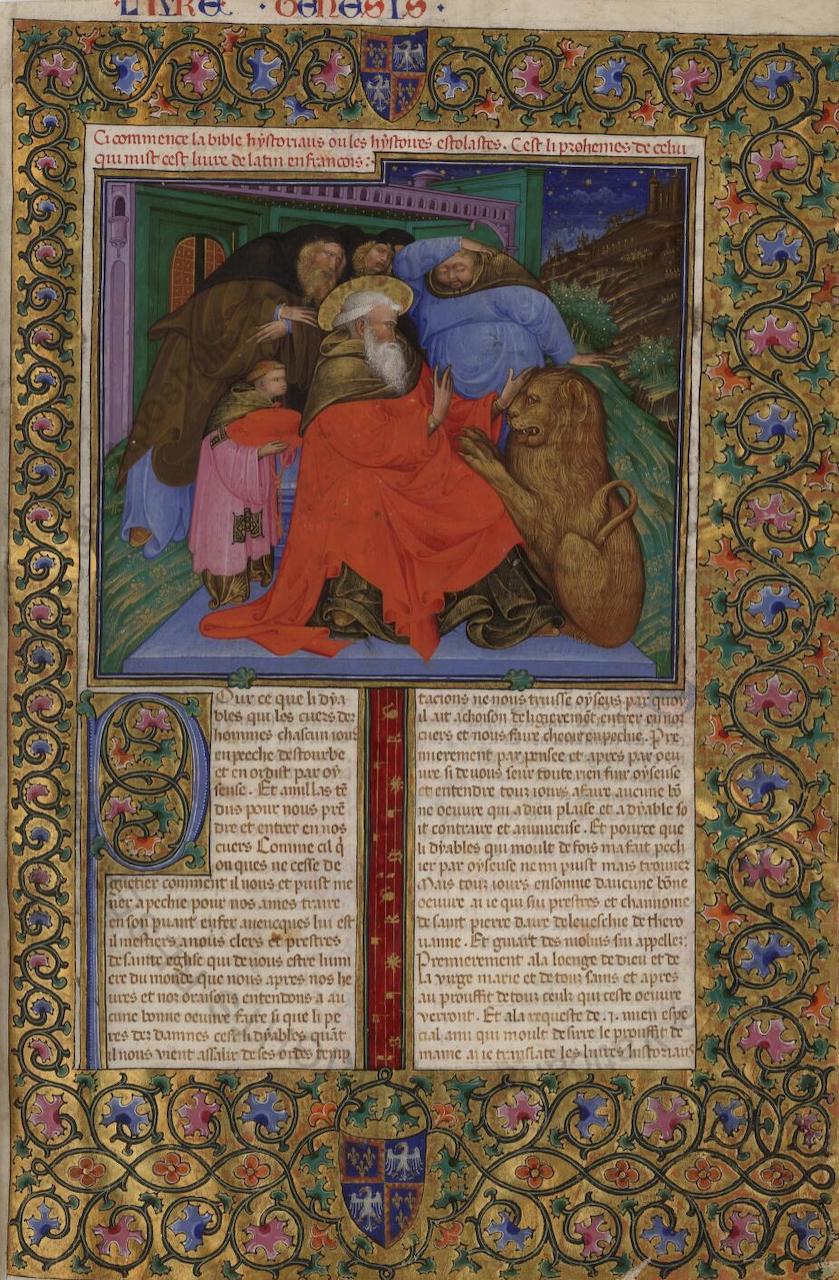 LIVRE · GENESIS ·
Ci commence la bible hystoriaus ou les hystoires escolastes. Cest li prohemes de celui
qui mist cest livre de latin en francois :·
Pour ce que li dya
bles qui les cuers des
hommes chascun iour
enpeche destourbe
et en ordist par oy
seuse . Et a mil las tē
dus pour nous prē
dre et entrer en nos
cuers Comme cil q̄
onques ne cesse de
guetier comment il nous et puist me
ner a pechie pour nos ames traire
en son puant enfer avecques lui est
il mestiers a nous clers et prestres
de sainte eglise qui devons estre lumi
ere du monde que nous apres nos he
ures et nos oraisons entendons a au
cune bonne oeuvre faire si que li pe
res des dampnes cest li dyables quāt
il nous vient assalir de ses ordes temp
tacions ne nous truisse oyseus par quoy
il ait achoison de ligierement entrer en nos
cuers et nous faire cheoir en pechie. Pre
mierement par pensee et apres par oeu
vre si devons seur toute rien fuir oyseuse
et entendre tour iours a faire aucune bō
ne oeuvre qui a dieu plaise et a dyable so
it contraire et anuieuse . Et pource que
li dyables qui moult de fois ma fait pech
ier par oyseuse ne mi puist mais trouver
Mais tour iours ensonne daucune bōne
oeuvre ai ie qui sui prestres et chanoine
de saint pierre daire de leveschie de thero
uanne . Et guiart des molins sui appelles
Premierement a la loenge de dieu et de
la virge marie et de tous sains et apres
au prouffit de tous ceulz qui ceste oeuvre
verront . Et a la requeste de .j. mien espe
cial ami qui moult desirre le prouffit de
mame ai ie translate les livres historiaus